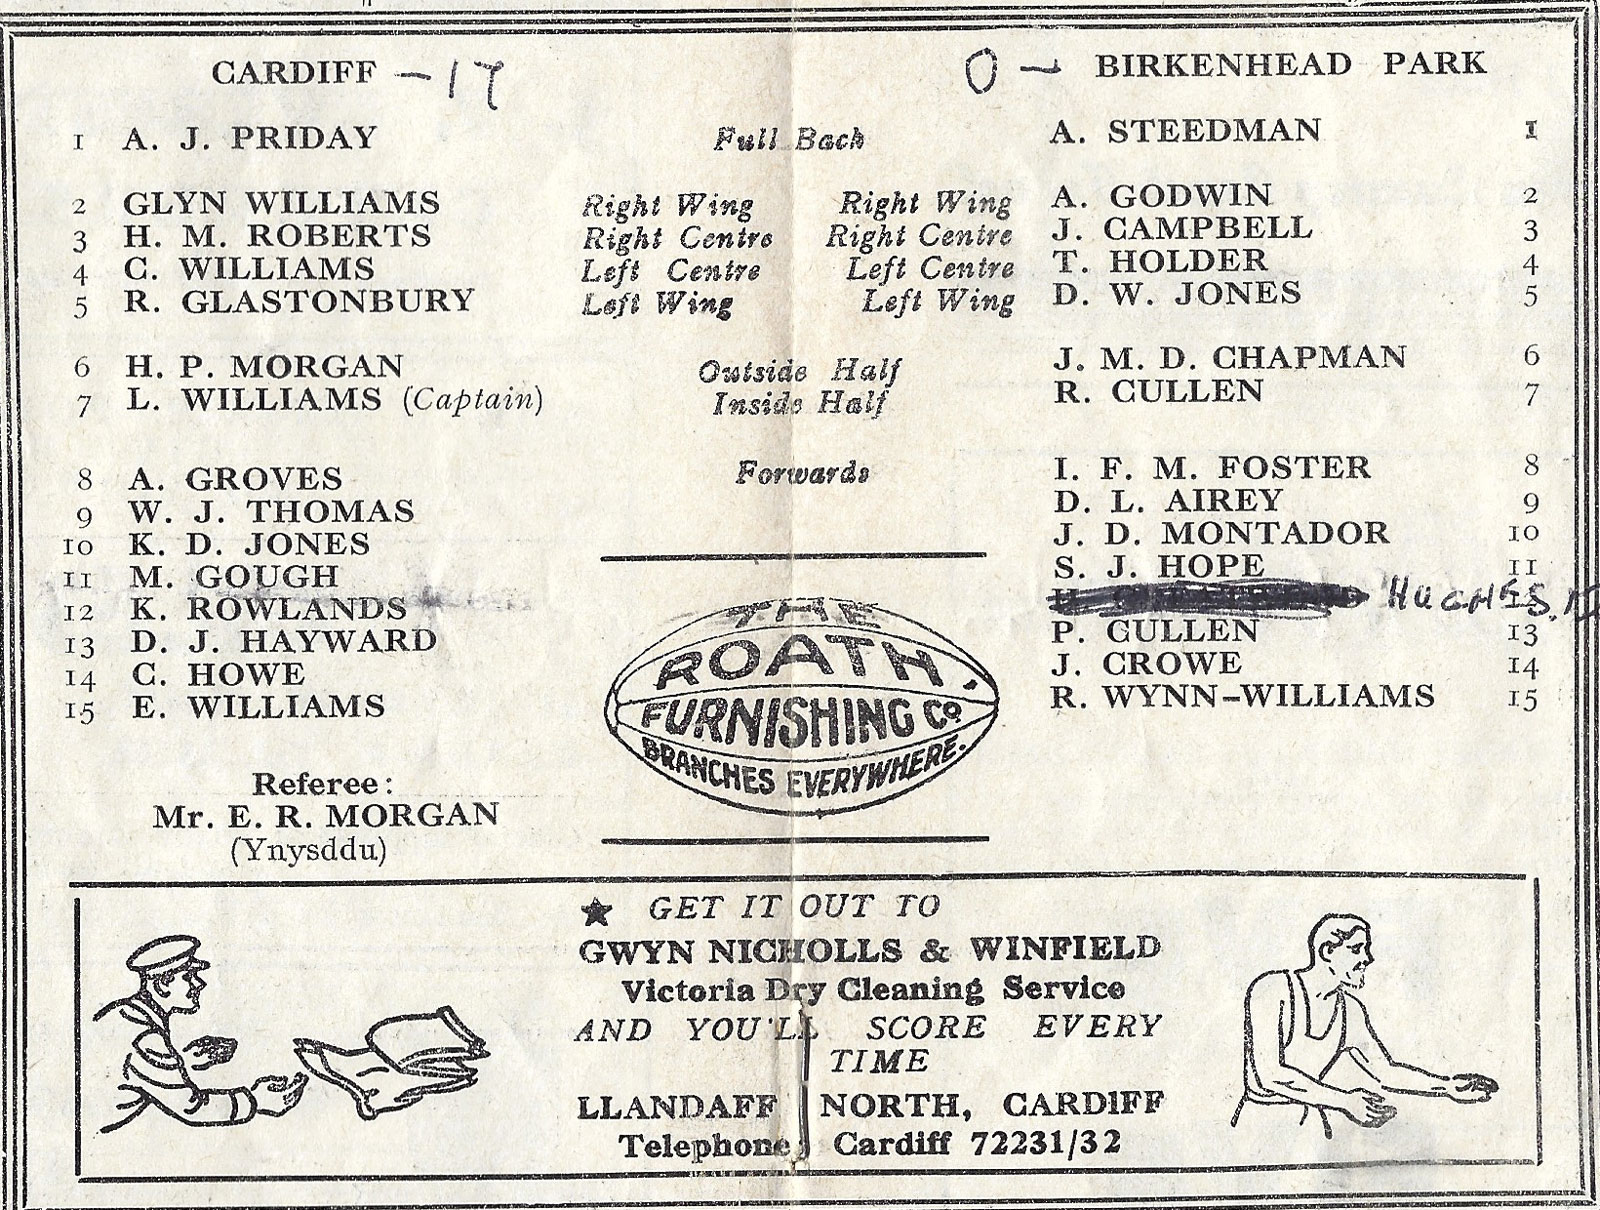 CARDIFF - 17
0 - BIRKENHEAD PARK
1 A. J. PRIDAY Full Back A. STEEDMAN 1
2 GLYN WILLIAMS Right Wing Right Wing A. GODWIN 2
3 H. M. ROBERTS Right Centre Right Centre J. CAMPBELL 3
4 C. WILLIAMS Left Centre Left Centre T. HOLDER 4
5 R. GLASTONBURY Left Wing Left Wing D. W. JONES 5
6 H. P. MORGAN Outside Half J. M. D. CHAPMAN 6
7 L. WILLIAMS (Captain) Inside Half R. CULLEN 7
8 A. GROVES Forwards I. F. M. FOSTER 8
9 W. J. THOMAS D. L. AIREY 9
10 K. D. JONES J. D. MONTADOR 10
11 M. GOUGH S. J. HOPE 11
12 K. ROWLANDS HUGHES.
13 D. J. HAYWARD P. CULLEN 13
14 C. HOWE J. CROWE 14
15 E. WILLIAMS R. WYNN-WILLIAMS 15
THE
ROATH
FURNISHING Co.
BRANCHES EVERYWHERE.
Referee:
Mr. E. R. MORGAN
(Ynysddu)
★ GET IT OUT TO
GWYN NICHOLLS & WINFIELD
Victoria Dry Cleaning Service
AND YOU'LL SCORE EVERY
TIME
LLANDAFF NORTH, CARDIFF
Telephone Cardiff 72231/32